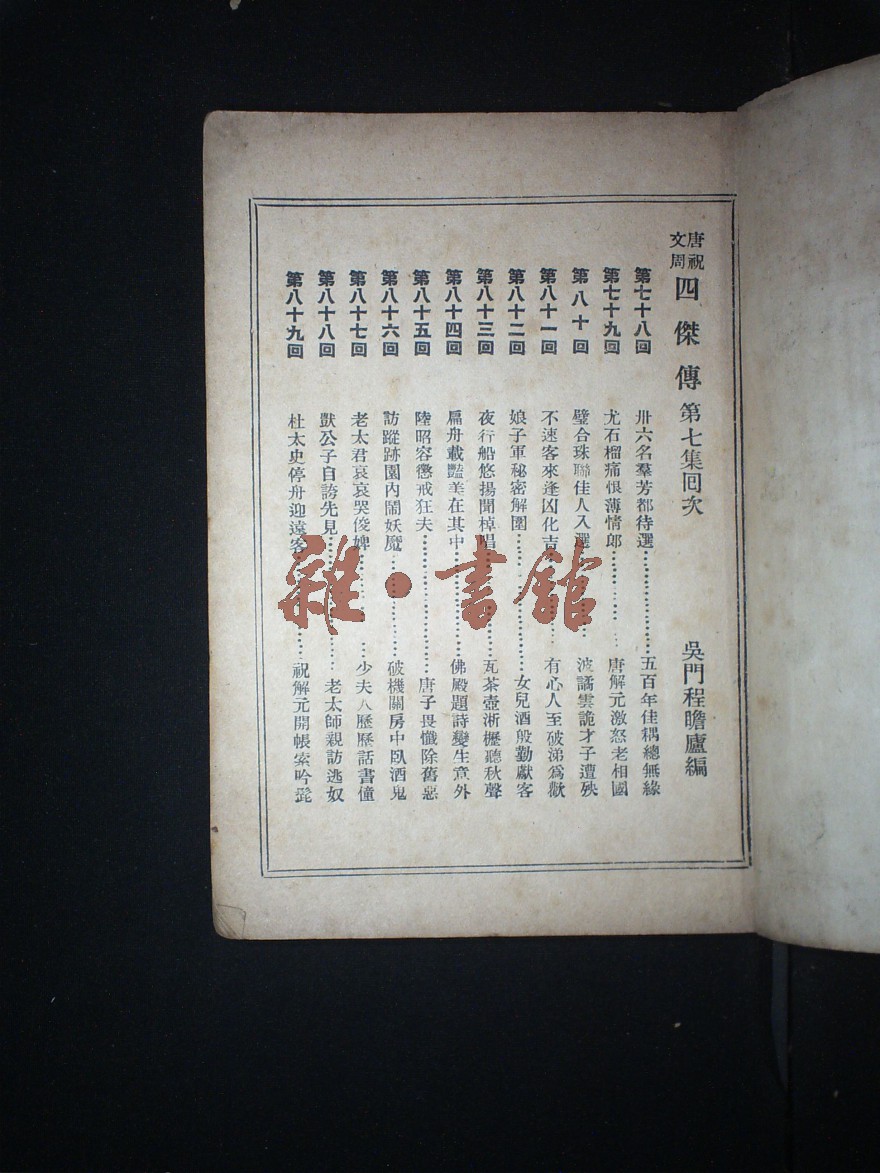 唐祝文周四傑傳第七集回次 吳門程瞻廬編
第七十八回 卅六名羣芳都待選……五百年佳耦總無緣
第七十九回 尤石榴痛恨薄情郎……唐解元激怒老相國
第八十回 璧合珠聯佳人入選……波譎雲詭才子遭殃
第八十一回 不速客來逢凶化吉……有心人至破涕爲歡
第八十二回 娘子軍秘密解圍……女兒酒殷勤獻客
第八十三回 夜行船悠揚聞棹唱……瓦茶壺淅瀝聽秋聲
第八十四回 扁舟載豔美在其中……佛殿題詩變生意外
第八十五回 陸昭容懲戒狂夫……唐子畏懺除舊惡
第八十六回 訪蹤跡園內鬧妖魔……破機關房中臥酒鬼
第八十七回 老太君哀哀哭俊婢……少夫人歷歷話書僮
第八十八回 獃公子自誇先見……老太師親訪逃奴
第八十九回 杜太史停舟迎遠客……祝解元開帳索吟髭
雜·書館